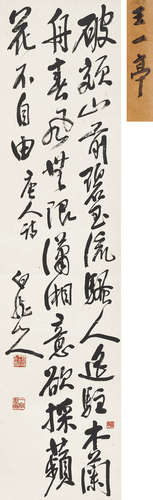 破額山前碧玉流騷人遙駐木蘭
舟春風無限瀟湘意欲採蘋
花不自由 唐人詩 白龍山人
王一亭